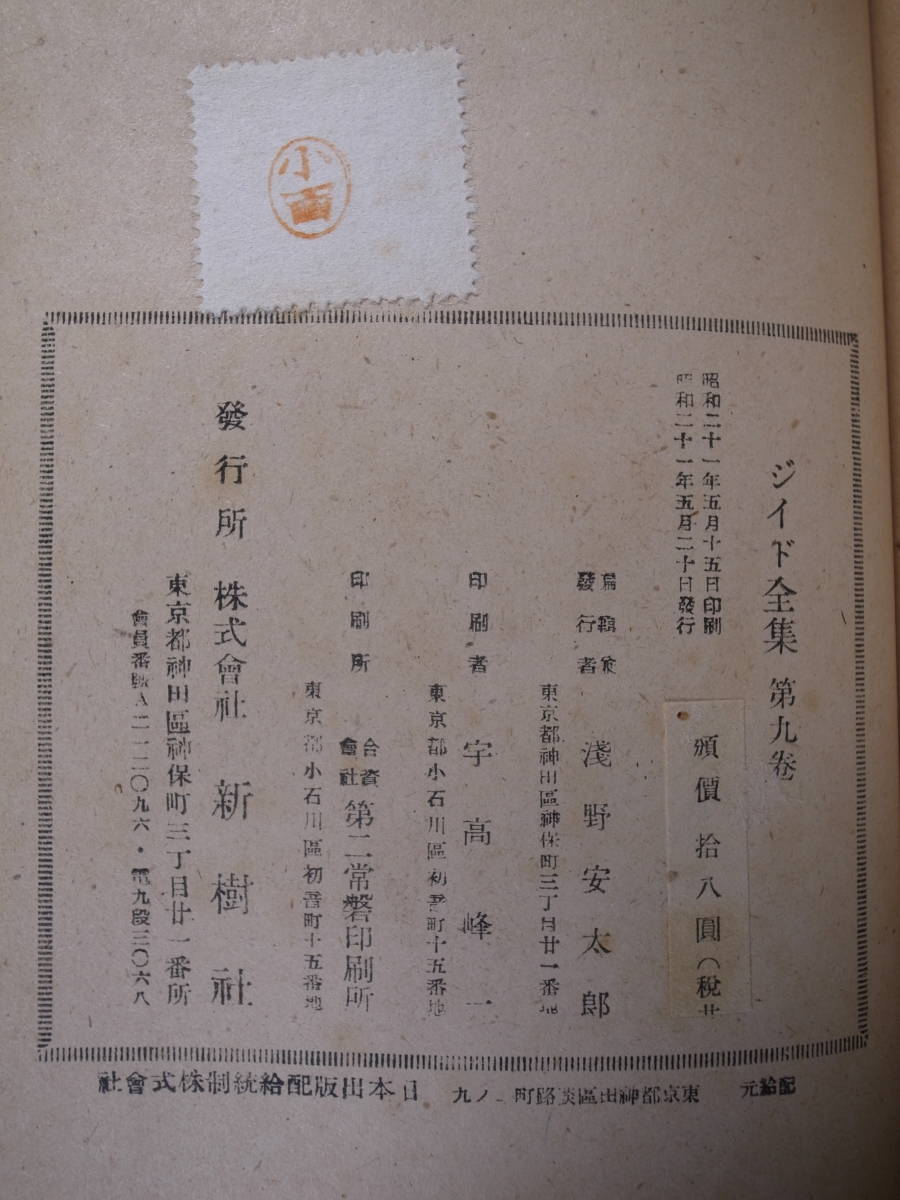 小西
ジイド全集 第九巻
昭和二十一年五月十五日印刷
昭和二十一年五月二十日發行
頒價 拾八圓(税共
編輯兼
發行者 淺野安太郎
東京都神田區神保町三丁目廿一番地
印刷者 宇高峰一
東京都小石川區初音町十五番地
印刷所 合資會社 第二常磐印刷所
東京都小石川區初音町十五番地
發行所 株式會社 新樹社
東京都神田區神保町三丁目廿一番所
會員番號A二一二〇九六・電九段三〇六八
配給元 東京都神田區淡路町二ノ九 日本出版配給統制株式會社